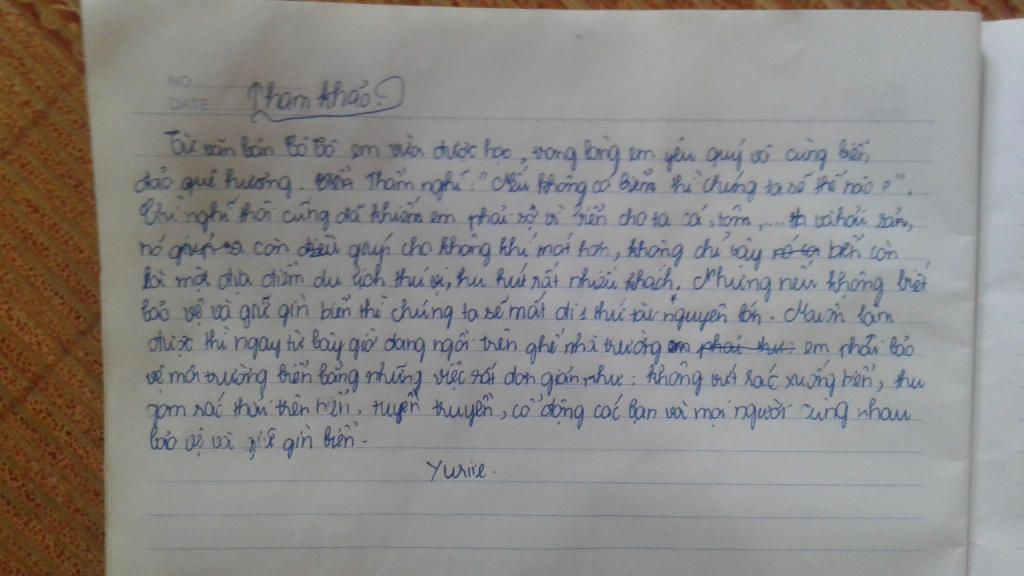 NO
DATE
Tham khảo:
Từ văn bản Cô Tô em vừa được học, trong lòng em yêu quý vô cùng biển
đảo quê hương. Thầm nghĩ: "Nếu không có biển thì chúng ta sẽ thế nào?".
Chỉ nghĩ thôi cũng đã khiến em phải sợ vì biển cho ta cá, tôm,.... và hải sản,
nó còn giúp cho không khí mát hơn, không chỉ vậy biển còn
là một địa điểm du lịch thú vị, thu hút rất nhiều khách. Nhưng nếu không biết
bảo vệ và giữ gìn biển thì chúng ta sẽ mất đi 1 thứ tài nguyên lớn. Muốn làm
được thì ngay từ bây giờ đang ngồi trên ghế nhà trường em phải bảo
vệ môi trường biển bằng những việc rất đơn giản như: không vứt rác xuống biển, thu
gom rác thải trên biển, tuyên truyền, cổ động các bạn và mọi người cùng nhau
bảo vệ và giữ gìn biển.
Yuriie.